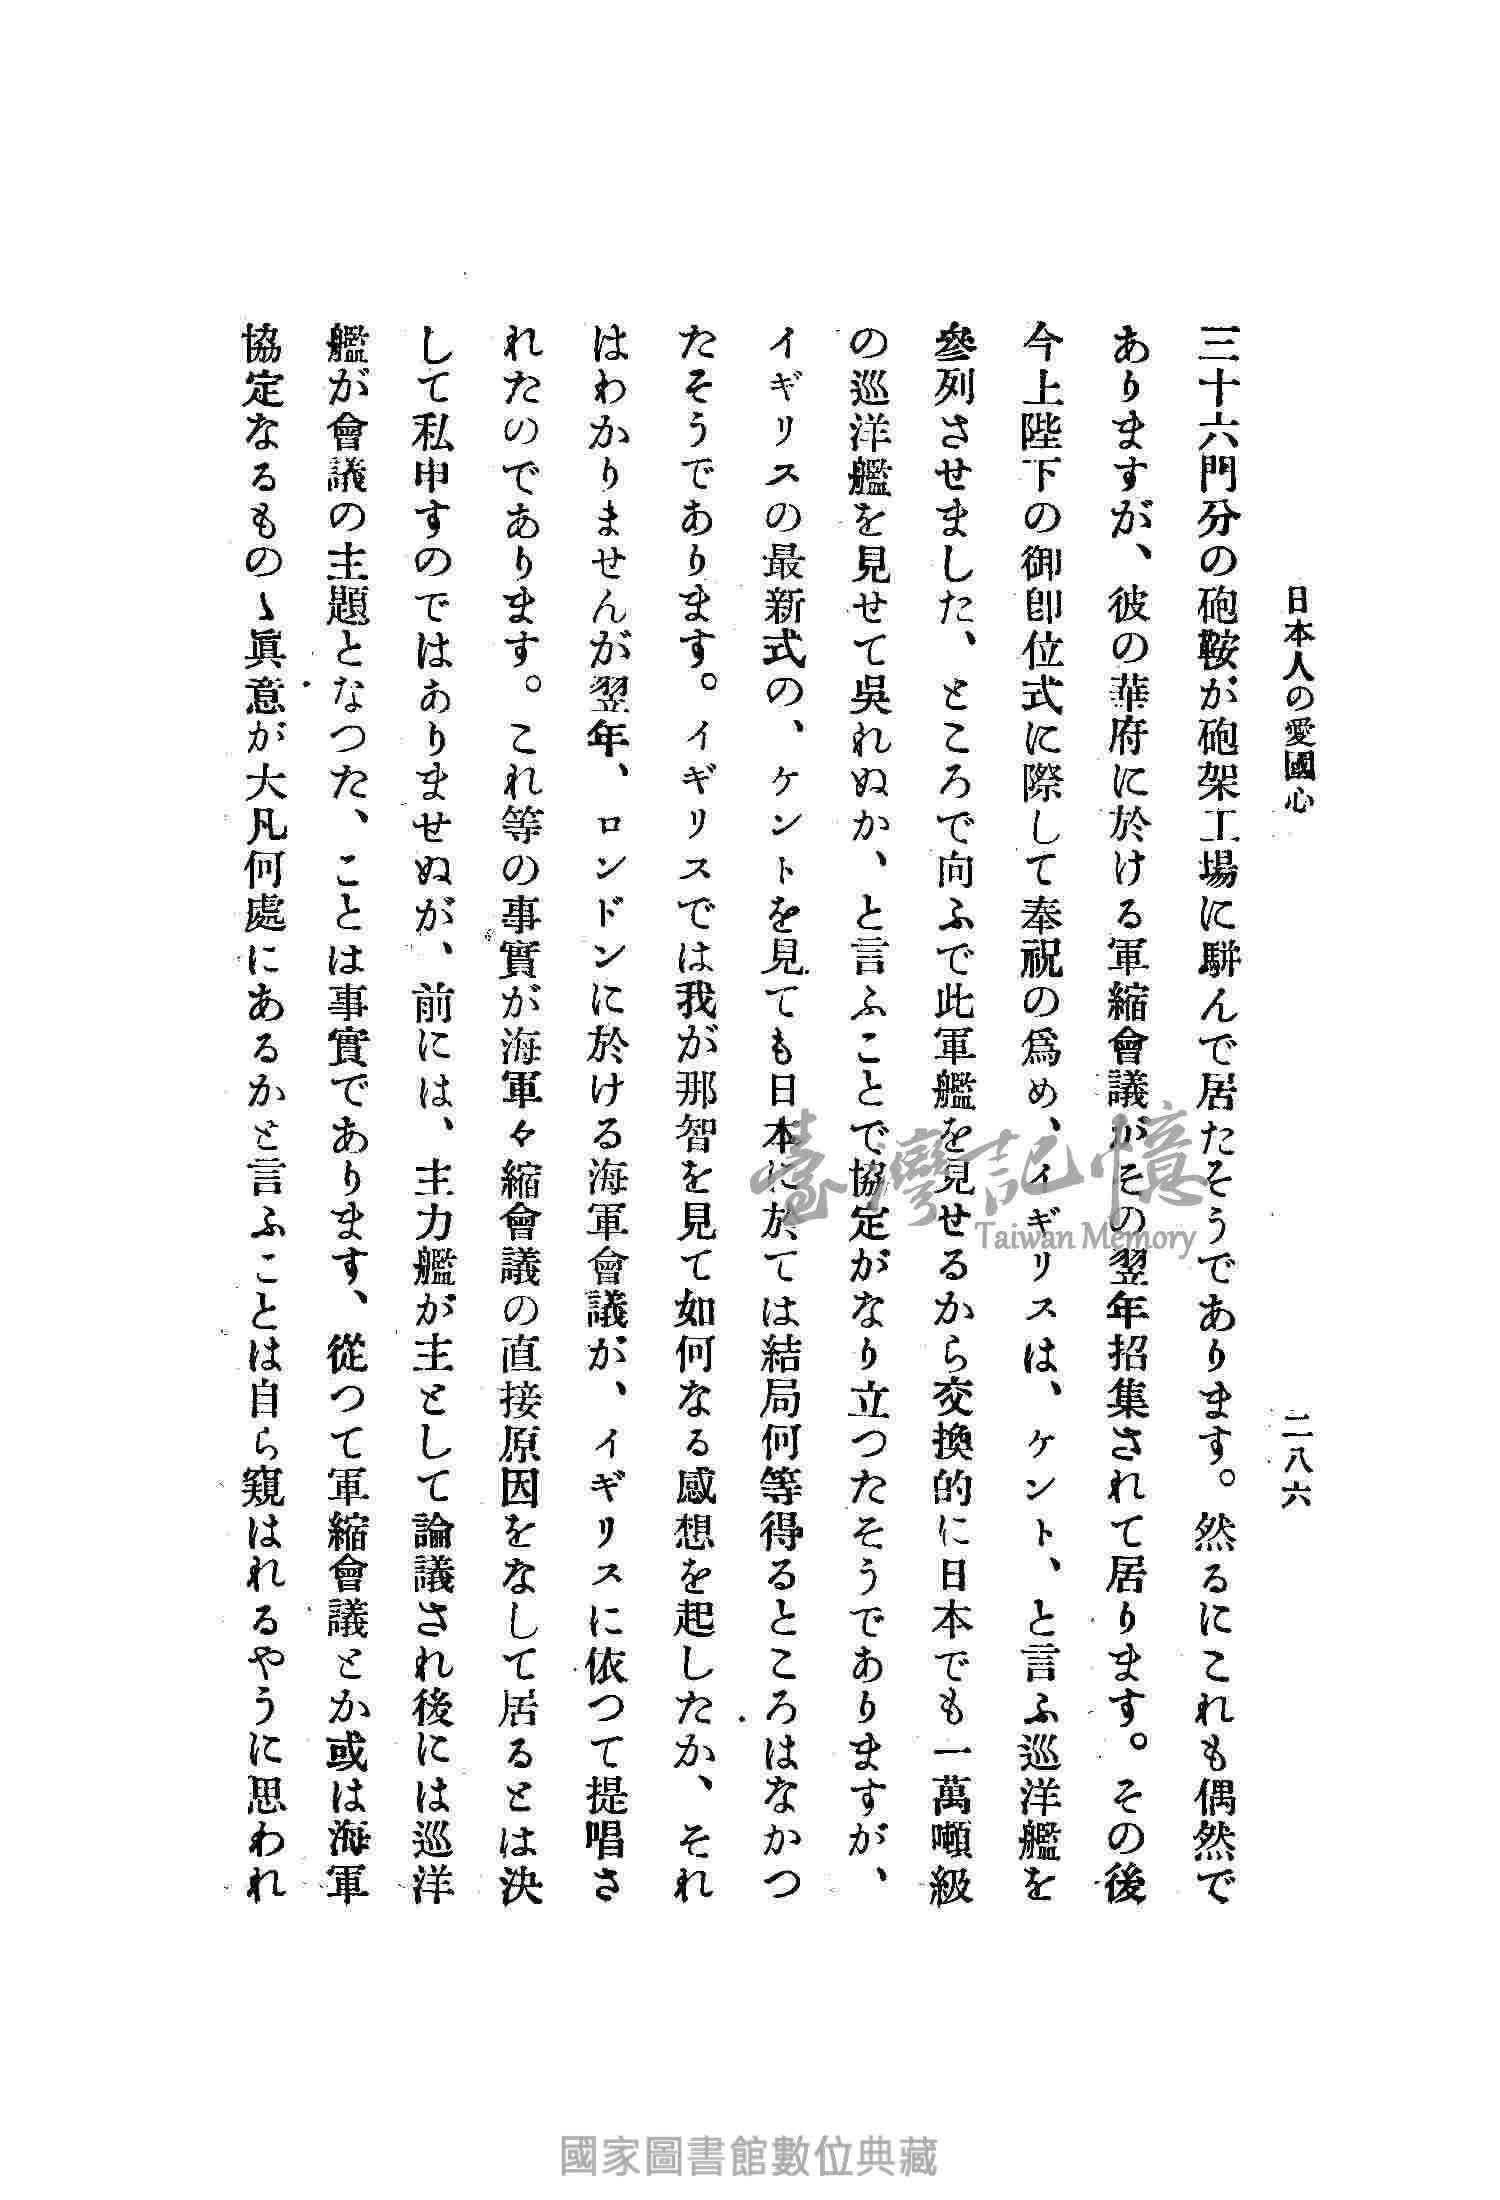 日本人の愛國心
二八六
三十六門分の砲鞍が砲架工場に駢んで居たそうであります。然るにこれも偶然で
ありますが、彼の華府に於ける軍縮會議がその翌年招集されて居ります。その後
今上陛下の御卽位式に際して奉祝の爲め、イギリスは、ケント、と言ふ巡洋艦を
參列させました、ところで向ふで此軍艦を見せるから交換的に日本でも一萬噸級
の巡洋艦を見せて吳れぬか、と言ふことで協定がなり立つたそうでありますが、
イギリスの最新式の、ケントを見ても日本に於ては結局何等得るところはなかつ
たそうであります。イギリスでは我が那智を見て如何なる感想を起したか、それ
はわかりませんが翌年、ロンドンに於ける海軍會議が、イギリスに依つて提唱さ
れたのであります。これ等の事實が海軍々縮會議の直接原因をなして居るとは決
して私申すのではありませぬが、前には、主力艦が主として論議され後には巡洋
艦が會議の主題となつた、ことは事實であります、從つて軍縮會議とか或は海軍
協定なるものゝ眞意が大凡何處にあるかと言ふことは自ら窺はれるやうに思われ
臺灣記憶
Taiwan Memory
國家圖書館數位典藏